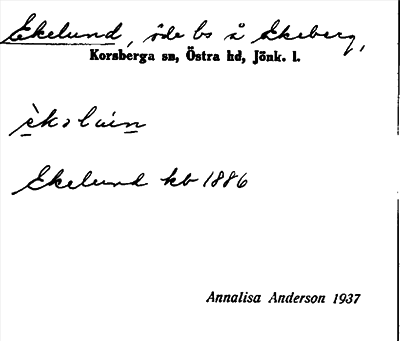 Ekelund, öde bs å Ekeberg,
Korsberga sn, Östra hd, Jönk. l.
Ekelund kb 1886
Annalisa Anderson 1937